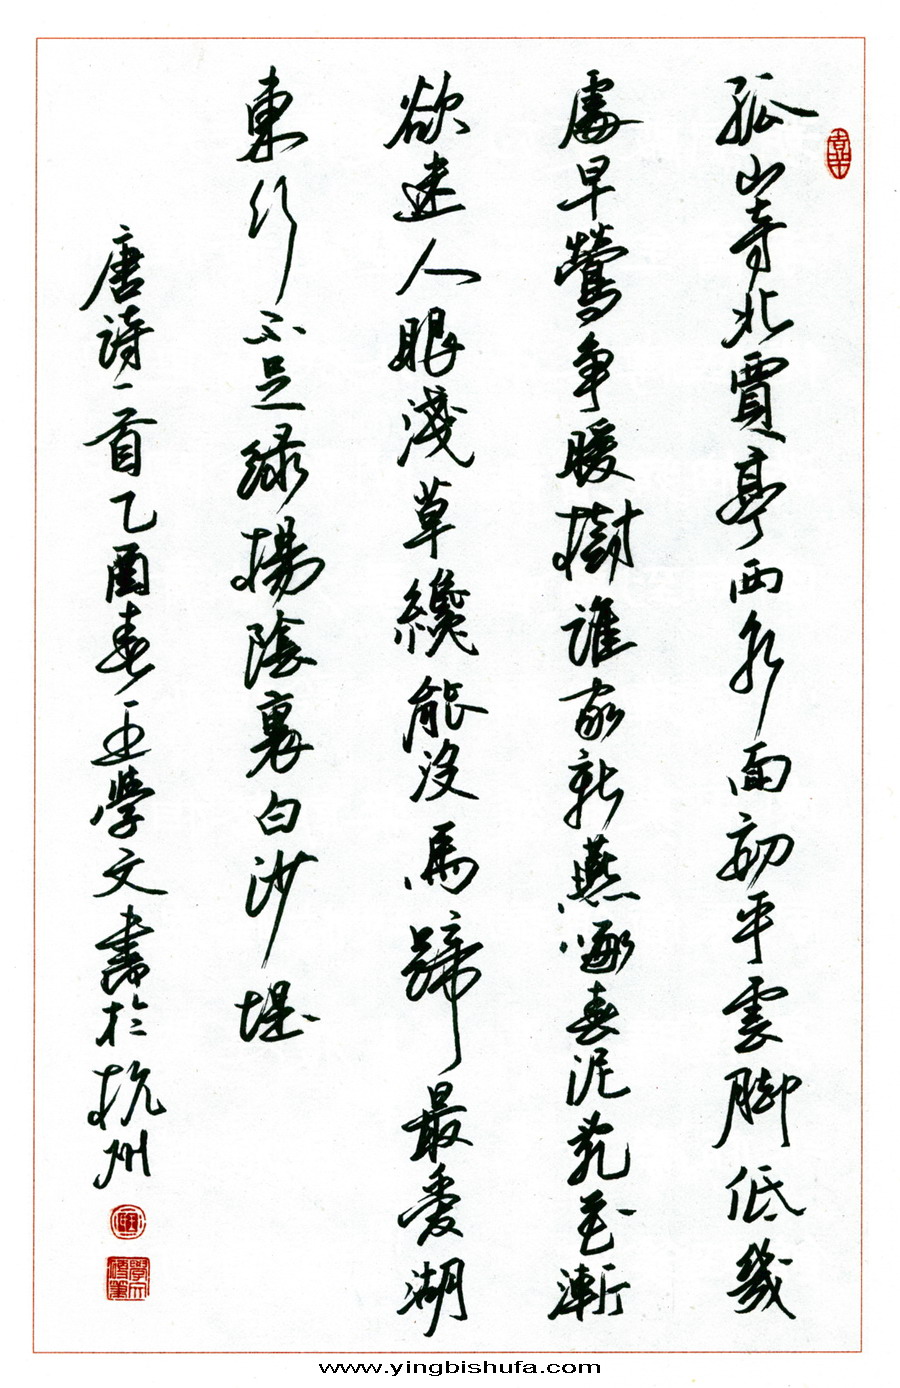 孤山寺北賈亭西水面初平雲脚低幾
處早鶯争暖樹誰家新燕啄春泥亂花漸
欲迷人眼淺草纔能没馬蹄最愛湖
東行不足緑楊陰裏白沙堤
唐詩一首乙酉春王學文書於杭州
www.yingbishufa.com